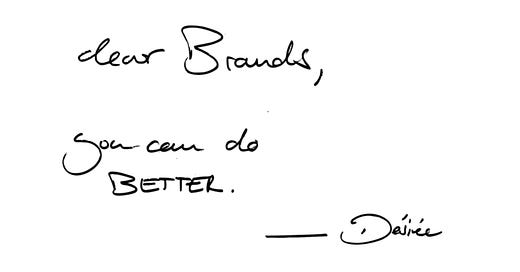 dear Brands,
you can do
BETTER.
— Désirée